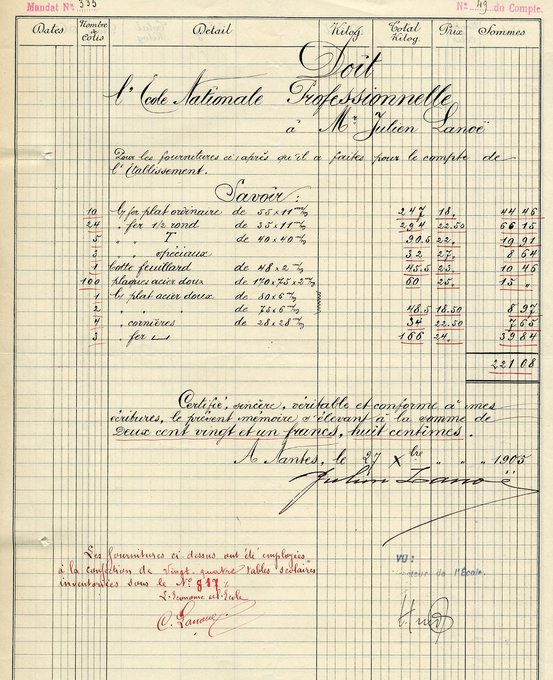 Mandat Nº 333 Nº 49 du Compte.
Dates Nombre de Colis Détail Kilog. Total Kilog. Prix Sommes
Doit
l'Ecole Nationale Professionnelle
à Mr Julien Lanoë
Pour les fournitures ci-après qu'il a faites pour le compte de
l'Etablissement.
Savoir :
10 fer plat ordinaire de 55 x 11 m/m 247 18 " 44 46
24 " fer 1/2 rond de 35 x 11 m/m 294 22.50 66 15
5 " " T de 40 x 40 m/m 90.5 22 " 19 91
3 " " spéciaux 32 27 " 8 64
1 botte feuillard de 48 x 2 m/m 45.5 23 " 10 46
100 plaques acier doux de 170 x 75 x 2 m/m 60 25 " 15 "
1 plat acier doux de 80 x 6 m/m
2 " " " de 75 x 6 m/m 48.5 18.50 8 97
4 " cornières de 28 x 28 m/m 34 22.50 7 65
3 " fer 166 24 " 39 84
221 08
Certifié, sincère, véritable et conforme à mes
écritures, le présent mémoire s'élevant à la somme de
Deux cent vingt et un francs, huit centimes.
A Nantes, le 27 Xbre " " 1905
Julien Lanoë
Les fournitures ci-dessus ont été employées
à la confection de vingt-quatre tables scolaires
inventoriées sous le Nº 817
L'Econome de l'Ecole
VU :
de l'École.